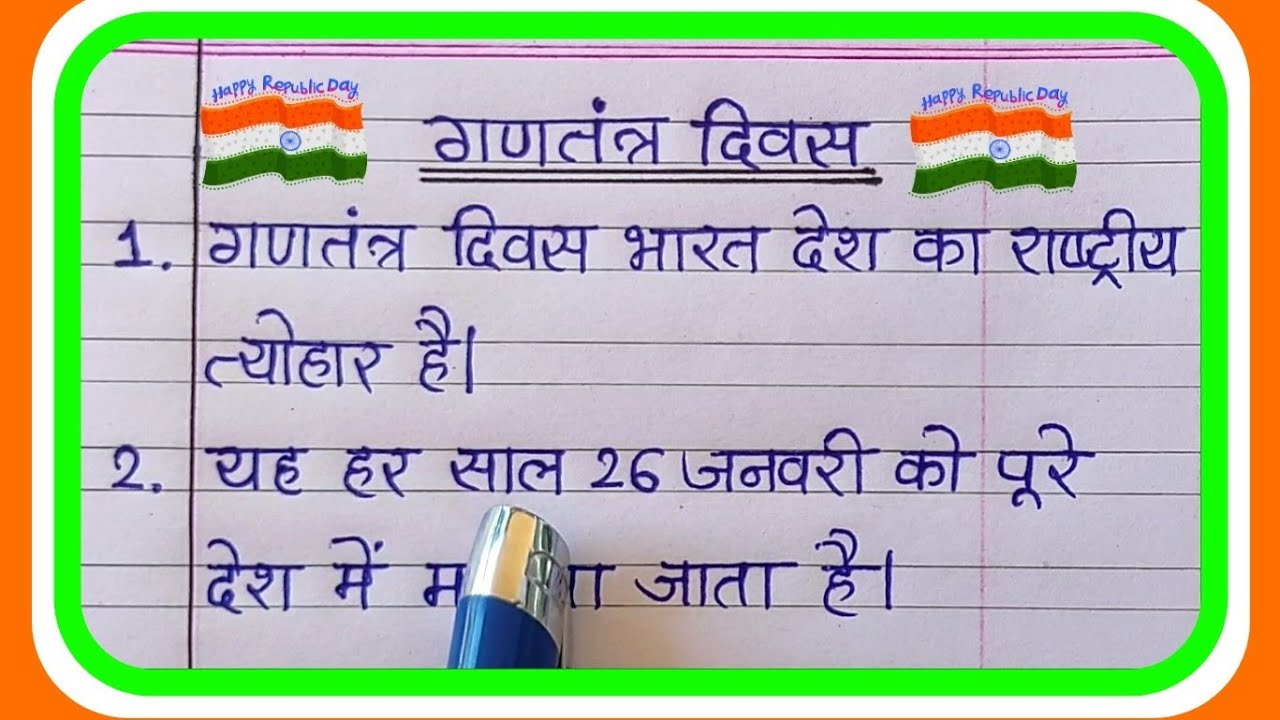 Happy Republic Day
Happy Republic Day
गणतंत्र दिवस
1. गणतंत्र दिवस भारत देश का राष्ट्रीय
त्योहार है।
2. यह हर साल 26 जनवरी को पूरे
देश में जाता है।